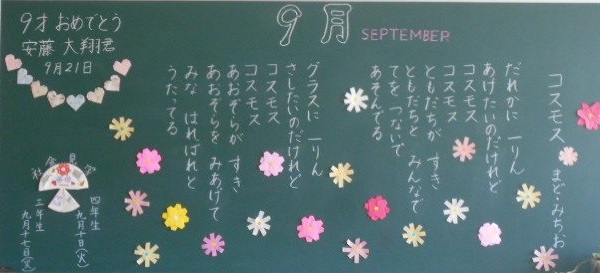 9月
SEPTEMBER
9才 おめでとう
安藤 大翔君
9月21日
コスモス
まど・みちお
だれかに 一りん
あげたいのだけれど
コスモス
コスモス
ともだちが すき
ともだちと みんなで
てを つないで
あそんでる
グラスに 一りん
さしたいのだけれど
コスモス
コスモス
あおぞらが すき
あおぞらを みあげて
みな はればれと
うたってる
社会見学
四年生
九月十日(火)
三年生
九月十七日(火)